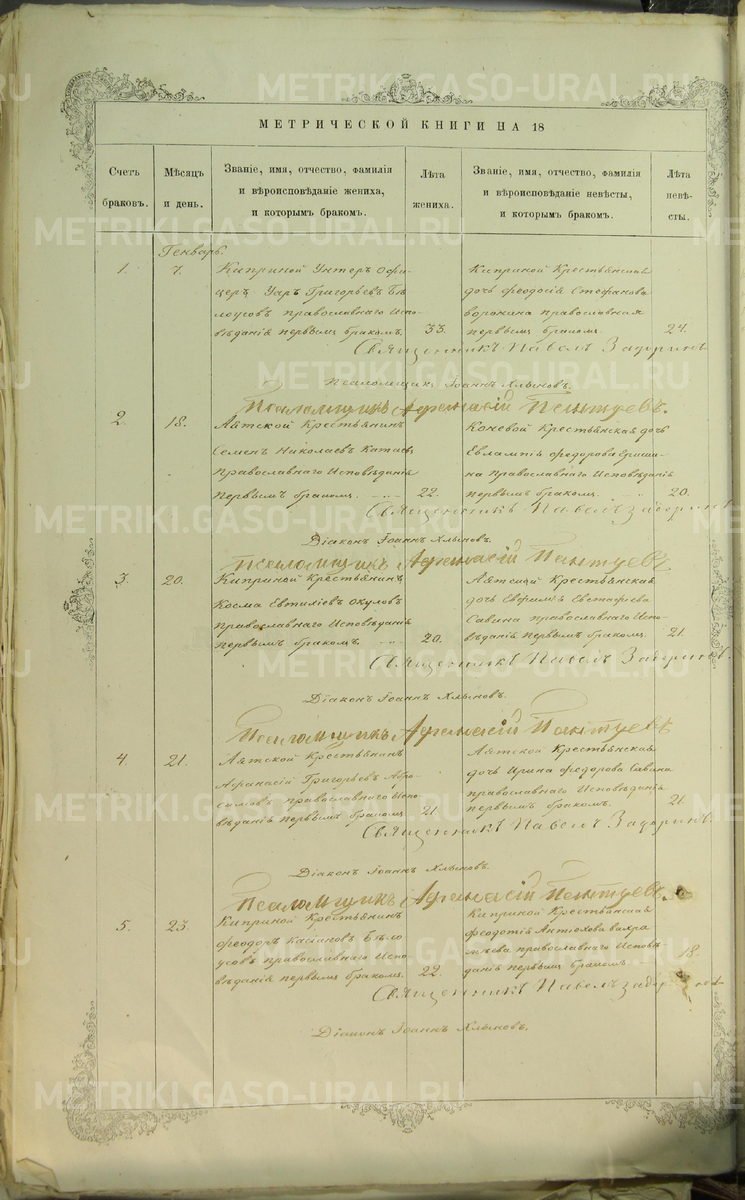 МЕТРИЧЕСКОЙ КНИГИ НА 18
Счетъ браковъ.
Мѣсяцъ и день.
Званіе, имя, отчество, фамилія
и вѣроисповѣданіе жениха,
и которымъ бракомъ.
Лѣта жениха.
Званіе, имя, отчество, фамилія
и вѣроисповѣданіе невѣсты,
и которымъ бракомъ.
Лѣта невѣ-
сты.
Генварь.
1. 7. Киприной Унтеръ Офи-
церъ Уаръ Григорьевъ Бѣ
лоусовъ православнаго Испо-
вѣданія первымъ бракомъ. 33.
Киприной Крестьянская
дочь Феодосія Стефанова
Воронина православная
первымъ бракомъ. 24.
Священникъ Павелъ
Псаломщикъ Іоаннъ Хлыновъ.
Псаломщикъ Афанасій
2. 18. Аятской Крестьянинъ
Семенъ Николаевъ
Православнаго Исповѣданія
Первымъ бракомъ. 22.
Коневой Крестьянская дочь
Евлампія Федорова
на Православнаго Исповѣданія
первымъ бракомъ. 20.
Священникъ Павелъ
Діаконъ Іоаннъ Хлыновъ.
Псаломщикъ Афанасій
3. 20. Киприной Крестьянинъ
Косма Евтихіевъ Окуловъ
Православнаго Исповѣданія
первымъ бракомъ. 20.
Аятской Крестьянская
дочь Евфимія Евстафіева
Савина православнаго Испо-
вѣданія первымъ бракомъ. 21.
Священникъ Павелъ
Діаконъ Іоаннъ Хлыновъ.
Псаломщикъ Афанасій
4. 21. Аятской Крестьянинъ
Афанасій Григорьевъ
православнаго Испо
вѣданія первымъ бракомъ 21.
Аятской Крестьянская
дочь Ирина Федорова Савина
православнаго Исповѣданія
первымъ бракомъ. 21.
Священникъ Павелъ
Діаконъ Іоаннъ Хлыновъ.
Псаломщикъ Афанасій
5. 23. Киприной Крестьянинъ
Феодоръ Касіановъ Бѣло
усовъ православнаго Испо-
вѣданія первымъ бракомъ. 22.
Киприной Крестьянская
Феодотія Антіохова Вахра
мѣева православнаго Исповѣ
данія первымъ бракомъ. 18.
Священникъ Павелъ
Діаконъ Іоаннъ Хлыновъ.
METRIKI.GASO-URAL.RU